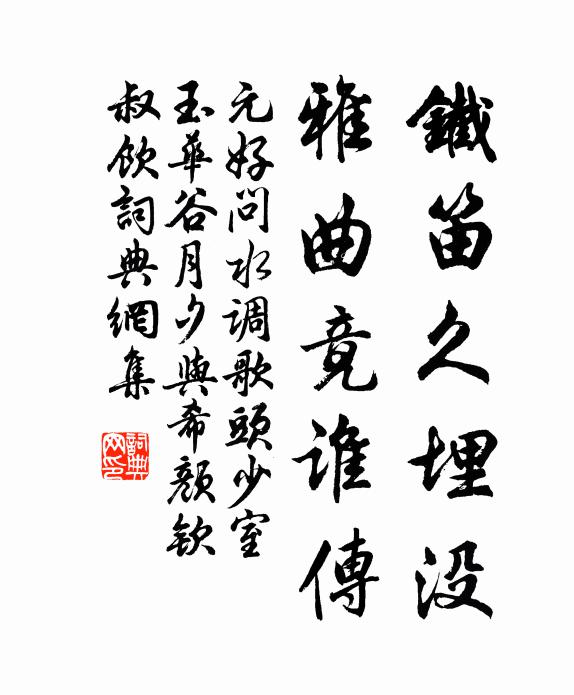 鐵笛久埋沒
雅曲竟誰傳
元好問水调歌頭少室
玉華谷月夕與希顏欽
叔飲詞典網集
詞典网印